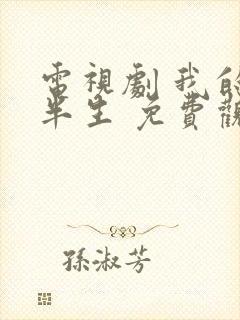 電視劇我的
半生 免費觀
孫淑芳